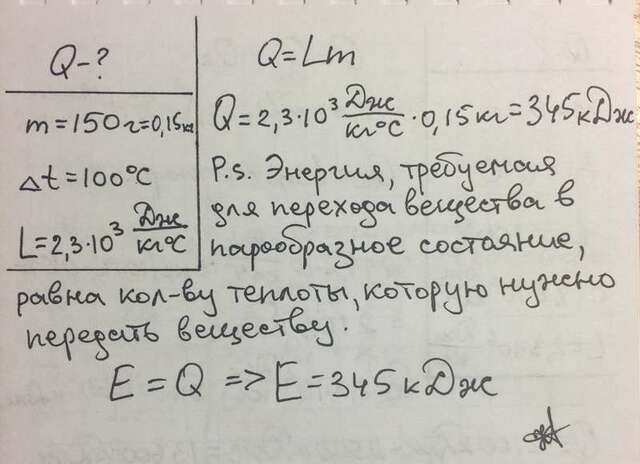 Q-?
m=150г=0,15кг
Δt=100°C
L=2,3·10³ Дж/кг°C
Q=Lm
Q=2,3·10³ Дж/кг°C·0,15кг=345кДж
P.s. Энергия, требуемая
для перехода вещества в
парообразное состояние,
равна кол-ву теплоты, которую нужно
передать веществу.
E=Q=>E=345кДж